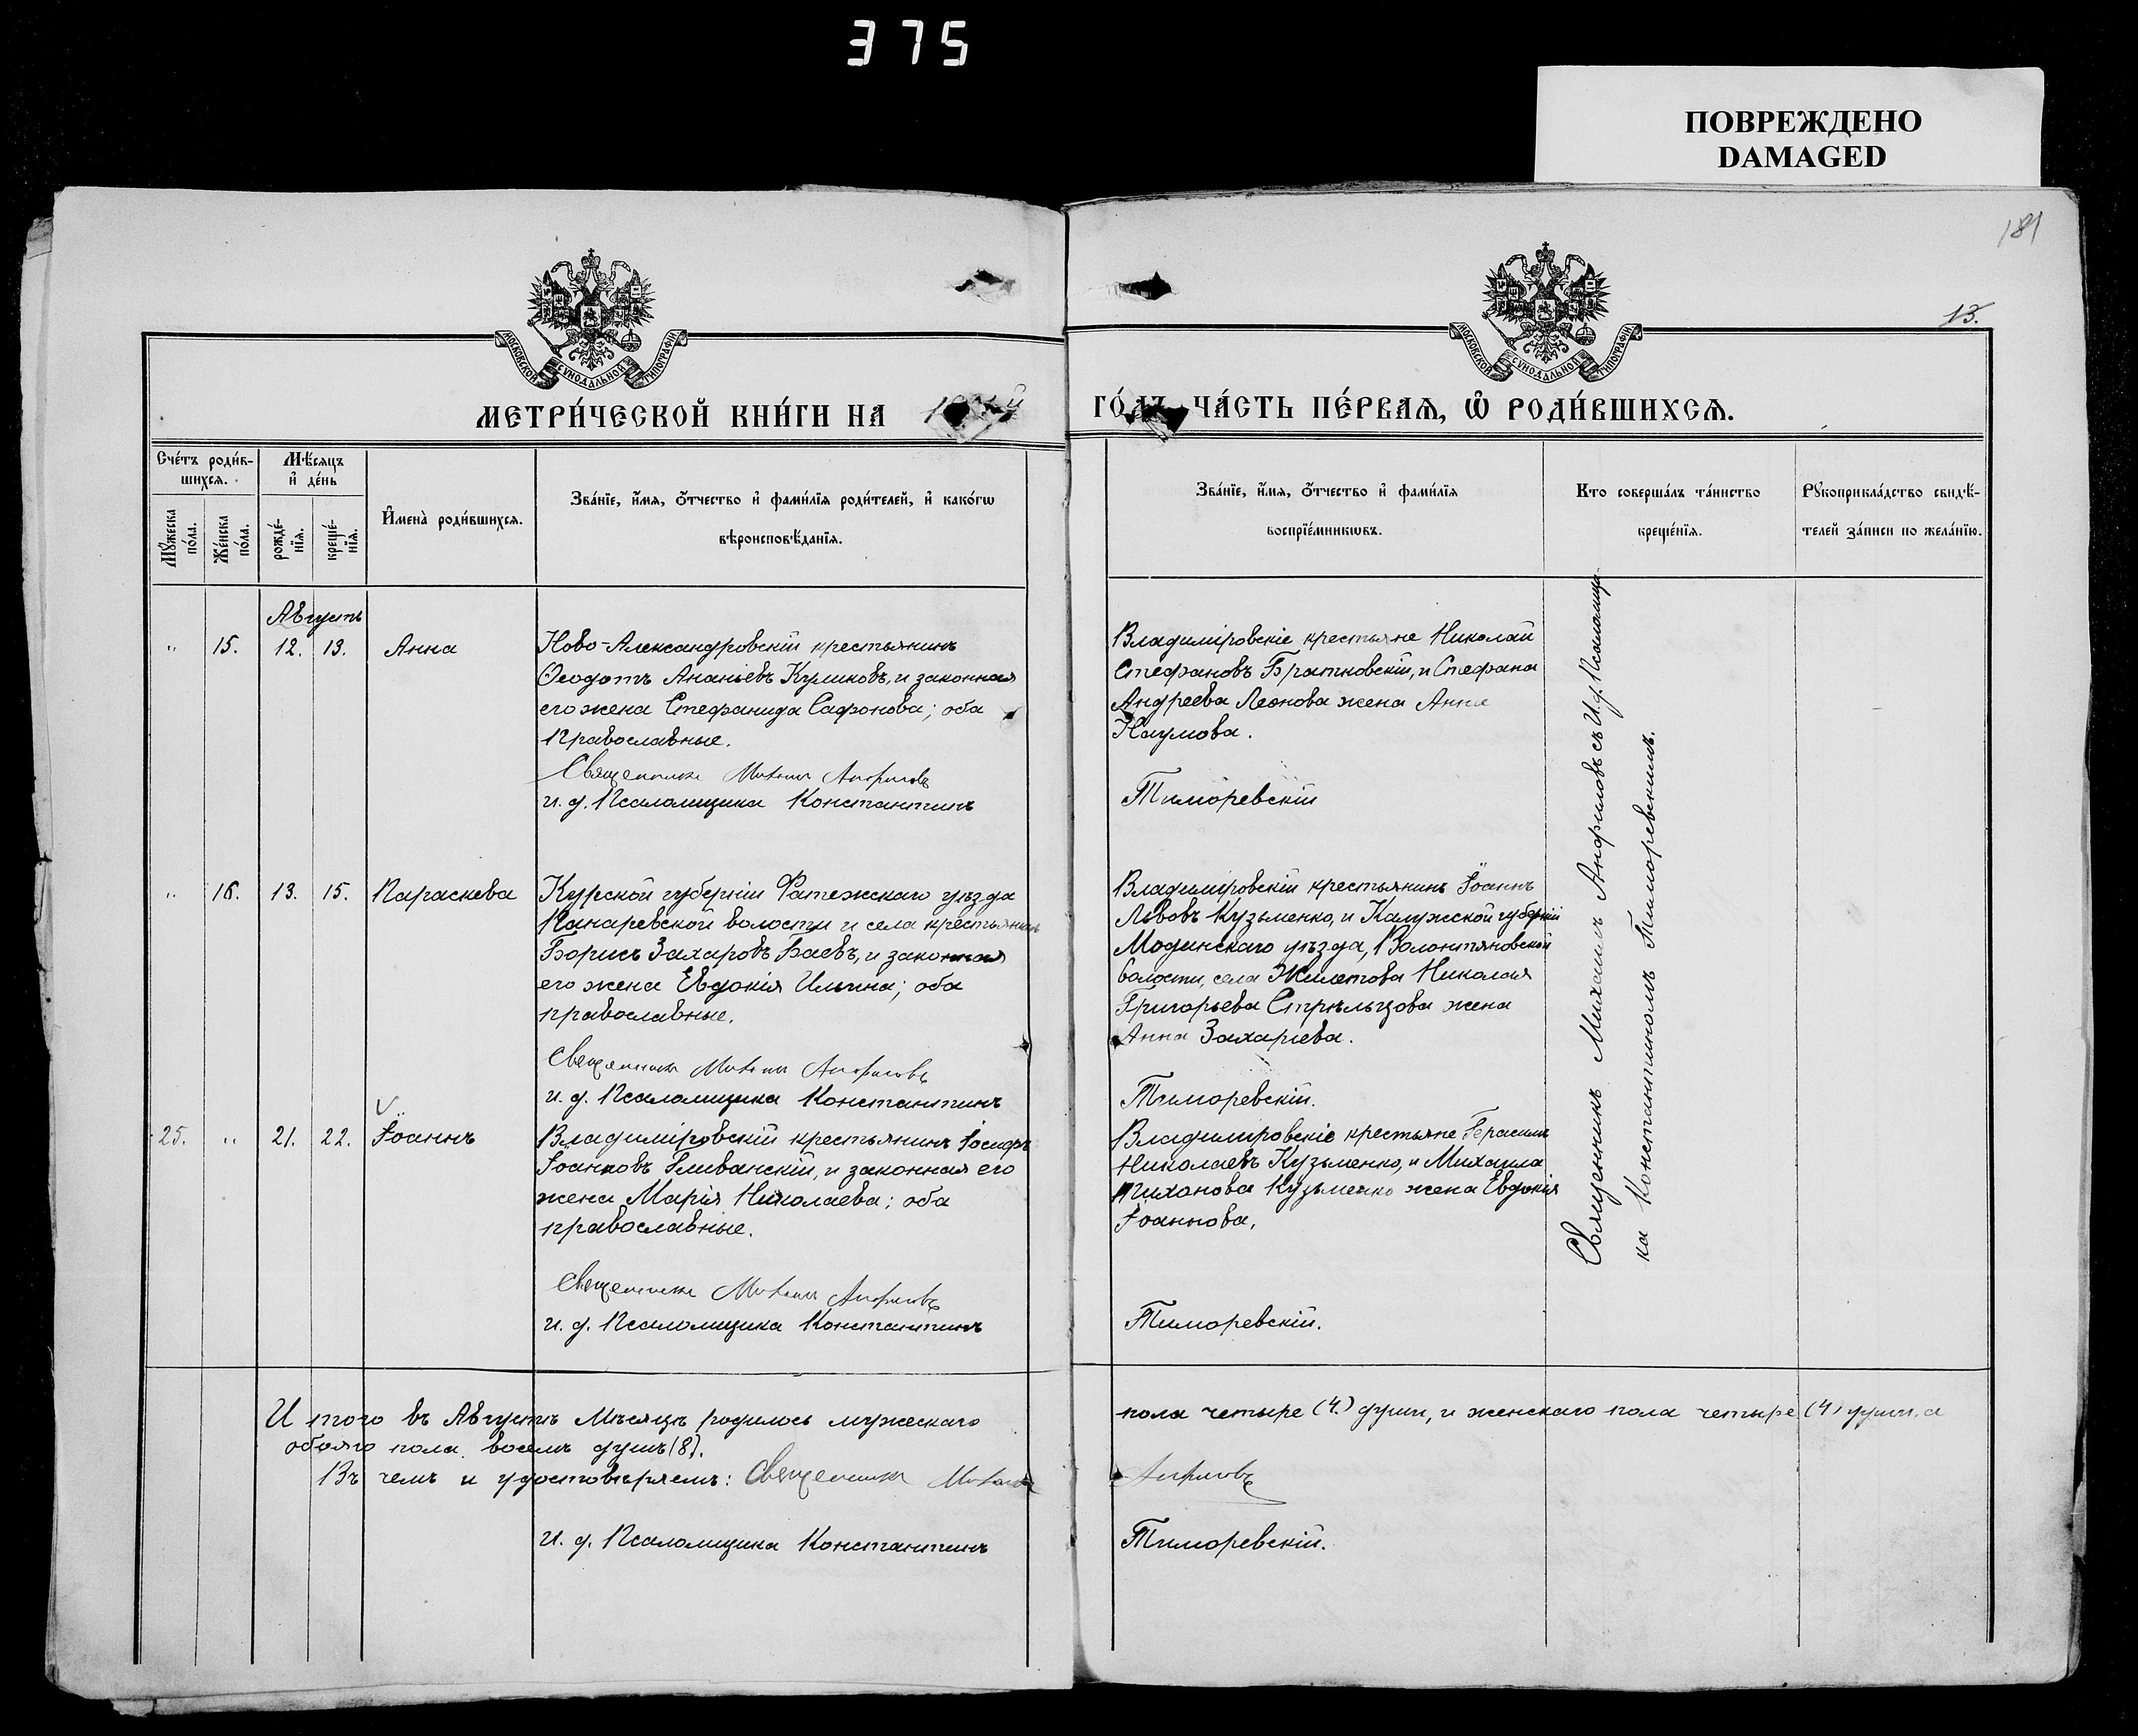 375
ПОВРЕЖДЕНО
DAMAGED
181
13.
МОСКОВСКОЙ СѴНОДАЛЬНОЙ ТИПОГРАФІИ
МОСКОВСКОЙ СѴНОДАЛЬНОЙ ТИПОГРАФІИ
МЕТРИ́ЧЕСКОЙ КНИ́ГИ НА
ГО́ДЪ, ЧА́СТЬ ПЕ́РВАЯ, Ѡ҆ РОДИ́ВШИХСЯ.
Сче́тъ роди́в-
шихся.
Мѣ́сяцъ
и҆ де́нь
Мꙋ́жеска по́ла.
Же́нска по́ла.
рожде́-
нїя.
креще́-
нїя.
И҆мена̀ роди́вшихся.
Зва́нїе, и҆́мя, о҆́тчество и҆ фами́лїя роди́телей, и҆ како́гѡ
вѣроисповѣ́данїя.
Зва́нїе, и҆́мя, о҆́тчество и҆ фами́лїя
воспрїе́мникѡвъ.
Кто соверша́лъ та́инство
креще́нїя.
Рꙋкоприкла́дство свидѣ́-
телей за́писи по жела́нїю.
Августъ
" 15. 12. 13. Анна
Ново-Александровскій крестьянинъ
Ѳеодотъ Ананьевъ Куликовъ, и законная
его жена Стефанида Сафонова; оба
православные.
Священникъ Михаилъ Анфиловъ
и. д. Псаломщика Константинъ
Владиміровскіе крестьяне Николай
Стефановъ Братковскій, и Стефана
Андреева Леонова жена Анна
Наумова.
Тиморевскій
" 16. 13. 15. Параскева
Курской губерніи Фатежскаго уѣзда
Панаревской волости и села крестьянинъ
Борисъ Захаровъ Баевъ, и законная
его жена Евдокія Ильина; оба
православные.
Священникъ Михаилъ Анфиловъ
и. д. Псаломщика Константинъ
Владиміровскій крестьянинъ Іоаннъ
Львовъ Кузьменко, и Калужской губерніи
уѣзда,
волости, села Жилетова Николая
Григорьева Стрѣльцова жена
Анна Захаріева.
Тиморевскій.
25. " 21. 22. Іоаннъ
Владиміровскій крестьянинъ Іосифъ
Іоанновъ Гливанскій, и законная его
жена Марія Николаева; оба
православные.
Священникъ Михаилъ Анфиловъ
и. д. Псаломщика Константинъ
Владиміровскіе крестьяне Герасимъ
Николаевъ Кузьменко, и Михаила
Тиханова Кузьменко жена Евдокія
Іоаннова.
Тиморевскій.
Священникъ Михаилъ Анфиловъ съ И. д. Псаломщи-
ка Константиномъ Тиморевскимъ.
Итого въ Августѣ мѣсяцѣ родилось мужескаго
пола четыре (4.) души, и женскаго пола четыре (4) души, а
обоего пола восемь душъ (8).
Въ чемъ и удостовѣряемъ: Священникъ Михаилъ
Анфиловъ
И. д. Псаломщика Константинъ
Тиморевскій.